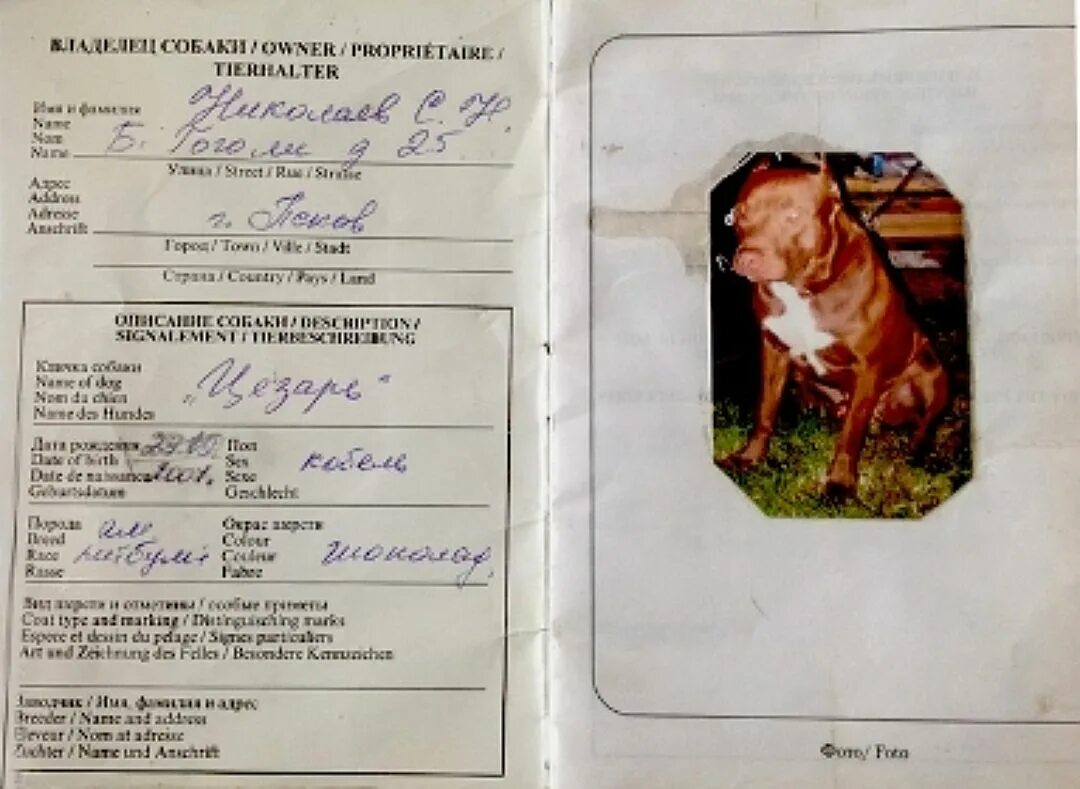 ВЛАДЕЛЕЦ СОБАКИ / OWNER / PROPRIÉTAIRE /
TIERHALTER
Имя и фамилия
Name
Nom
Name
Николаев С. Н.
Б. Гоголи д 25
Улица / Street / Rue / Straße
Адрес
Address
Adresse
Anschrift
г. Псков
Город / Town / Ville / Stadt
Страна / Country / Pays / Land
ОПИСАНИЕ СОБАКИ / DESCRIPTION /
SIGNALEMENT / TIERBESCHREIBUNG
Кличка собаки
Name of dog
Nom du chien
Name des Hundes
„Цезарь"
Дата рождения
Date of birth
Date de naissance
Geburtsdatum
Пол
Sex
Sexe
Geschlecht
кобель
Порода
Breed
Race
Rasse
ам
питбуль
Окрас шерсти
Colour
Couleur
Farbe
шоколад
Вид шерсти и отметины / особые приметы
Coat type and marking / Distinguisching marks
Espere et dessin du pelage / Signes particuliers
Art und Zeichnung des Felles / Besondere Kennzeichen
Заводчик / Имя, фамилия и адрес
Breeder / Name and address
Eleveur / Nom at adresse
Züchter / Name und Anschrift
Фото/ Foto